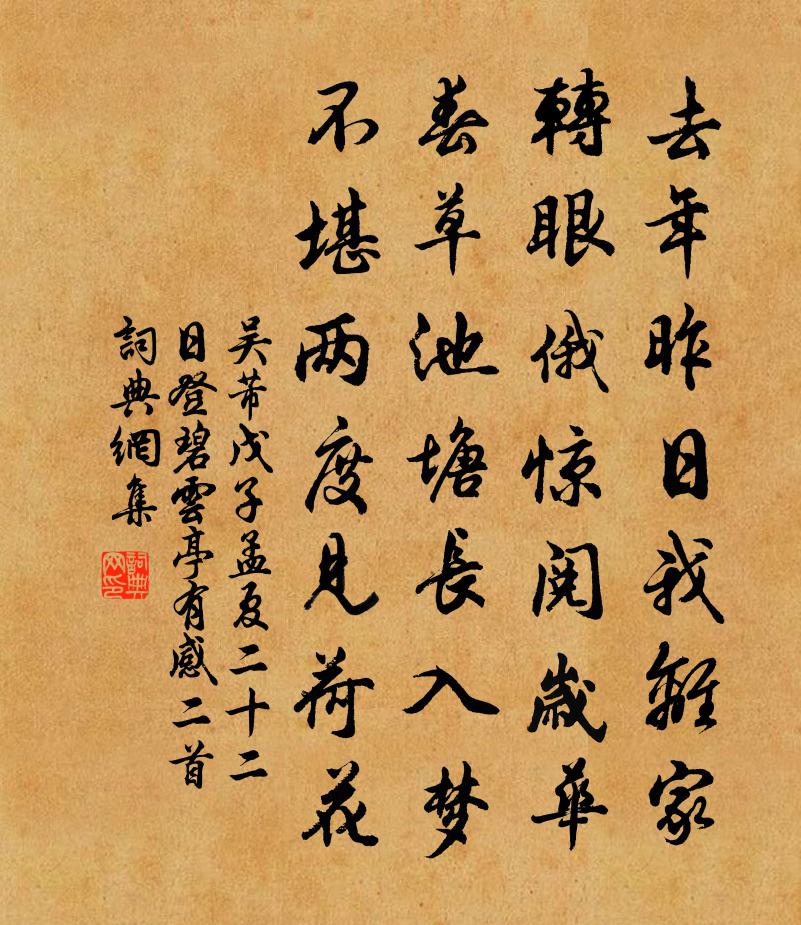 去年昨日我離家
轉眼俄惊閱歳華
春草池塘長入梦
不堪两度見荷花
吴芾戊子孟夏二十二
日登碧雲亭有感二首
詞典網集
詞典網印